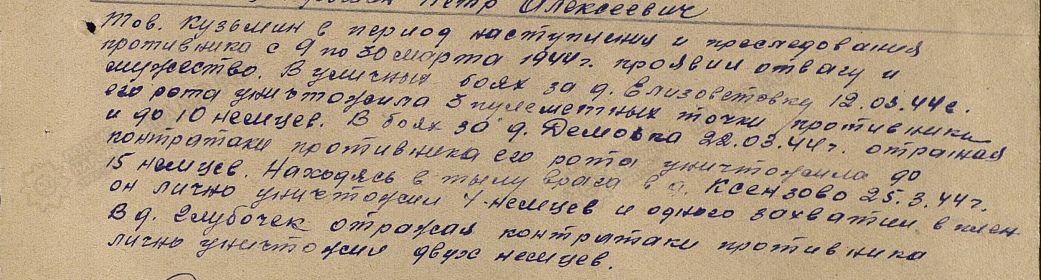 Петр Алексеевич
Тов. Кузьмин в период наступления и преследования
противника с 9 по 30 марта 1944г. проявил отвагу и
мужество. В уличных боях за д. Елизоветовку 12.03.44г.
его рота уничтожила 3 пулеметных точки противника
и до 10 немцев. В боях за д. Демовка 22.03.44г. отражая
контратаки противника его рота уничтожила до
15 немцев. Находясь в тылу врага в д. Ксензово 25.3.44г.
он лично уничтожил 4 немцев и одного захватил в плен
В д. Глубочек отражая контратаки противника
лично уничтожил двух немцев.